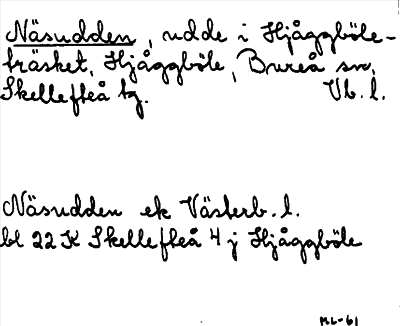 Näsudden, udde i Hjåggböle-
träsket, Hjåggböle, Bureå sn,
Skellefteå tg. Vb. l.
Näsudden ek Västerb. l.
bl 22 K Skellefteå 4 j Hjåggböle
ML-61